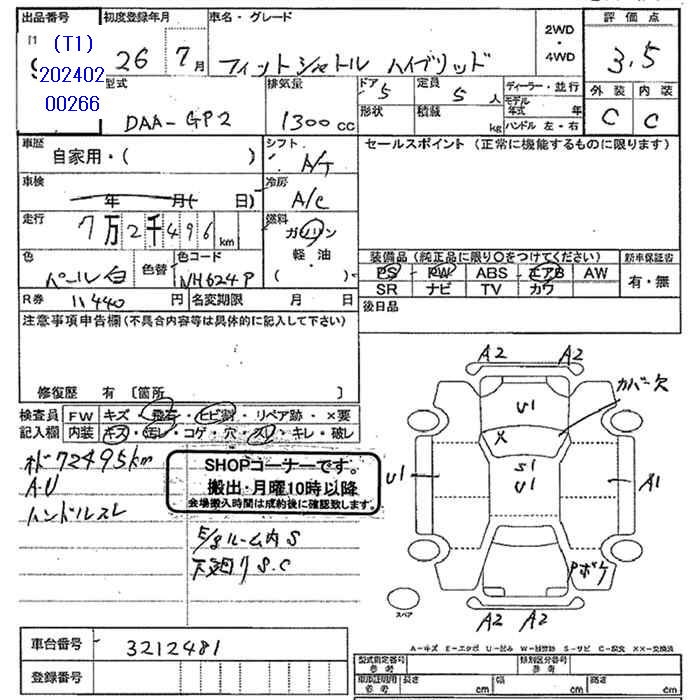 出品番号 初度登録年月 車名・グレード 2WD・4WD 評価点
(T1) 202402 00266
26 7月 フィットシャトル ハイブリッド 3.5
型式 排気量 ドア 5 定員 5 人 ディーラー・並行 外装 内装
DAA-GP2 1300cc 形状 積載 kg モデル年式 年 C C
ハンドル 左・右
車歴 自家用・( ) シフト A/T セールスポイント (正常に機能するものに限ります)
車検 年 月( 日) 冷房 A/C
走行 7万2千496km 燃料 ガソリン
軽油
( )
色 パール白 色替 色コード NH624P
装備品 (純正品に限り〇をつけてください) 新車保証書
PS PW ABS エアB AW 有・無
SR ナビ TV カワ
R券 11,440円 名変期限 月 日 後日品
注意事項申告欄 (不具合内容等は具体的に記入して下さい)
修復歴 有 〔箇所 〕
検査員 FW キズ・飛石・ヒビ割・リペア跡・×要
記入欄 内装 キズ・汚レ・コゲ・穴・スレ・キレ・破レ
オド72495km
A.U
ハンドルスレ
SHOPコーナーです。
搬出・月曜10時以降
会場搬入時間は成約後に確認致します。
E/gルーム内S
下廻りS.C
A2 A2
カバー欠
U1
X
U1 S1 A1
U1
Pボケ
スペア
A2 A2
車台番号 3212481
登録番号
A-キズ E-エクボ U-凹み W-補修跡 S-サビ C-腐食 XX-交換済
型式指定番号 参考 類別区分番号 参考
車庫証明用 参考 長さ cm 幅 cm 高さ cm